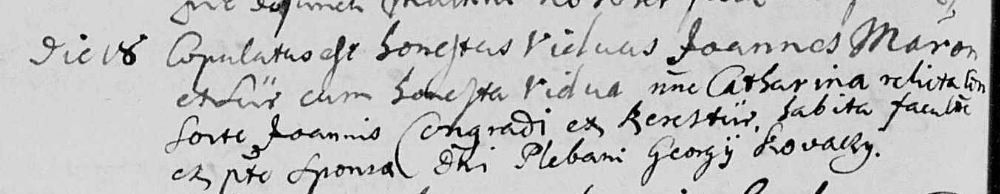 Die 18 Copulatus est honestus Viduus Joannes Maron
ex Für cum honesta Vidua nne Catharina relicta Con
sorte Joannis Congradi ex Keresztúr, habita facultate
ex pte sponsa Dni Plebani Georgÿ Kovaczy.